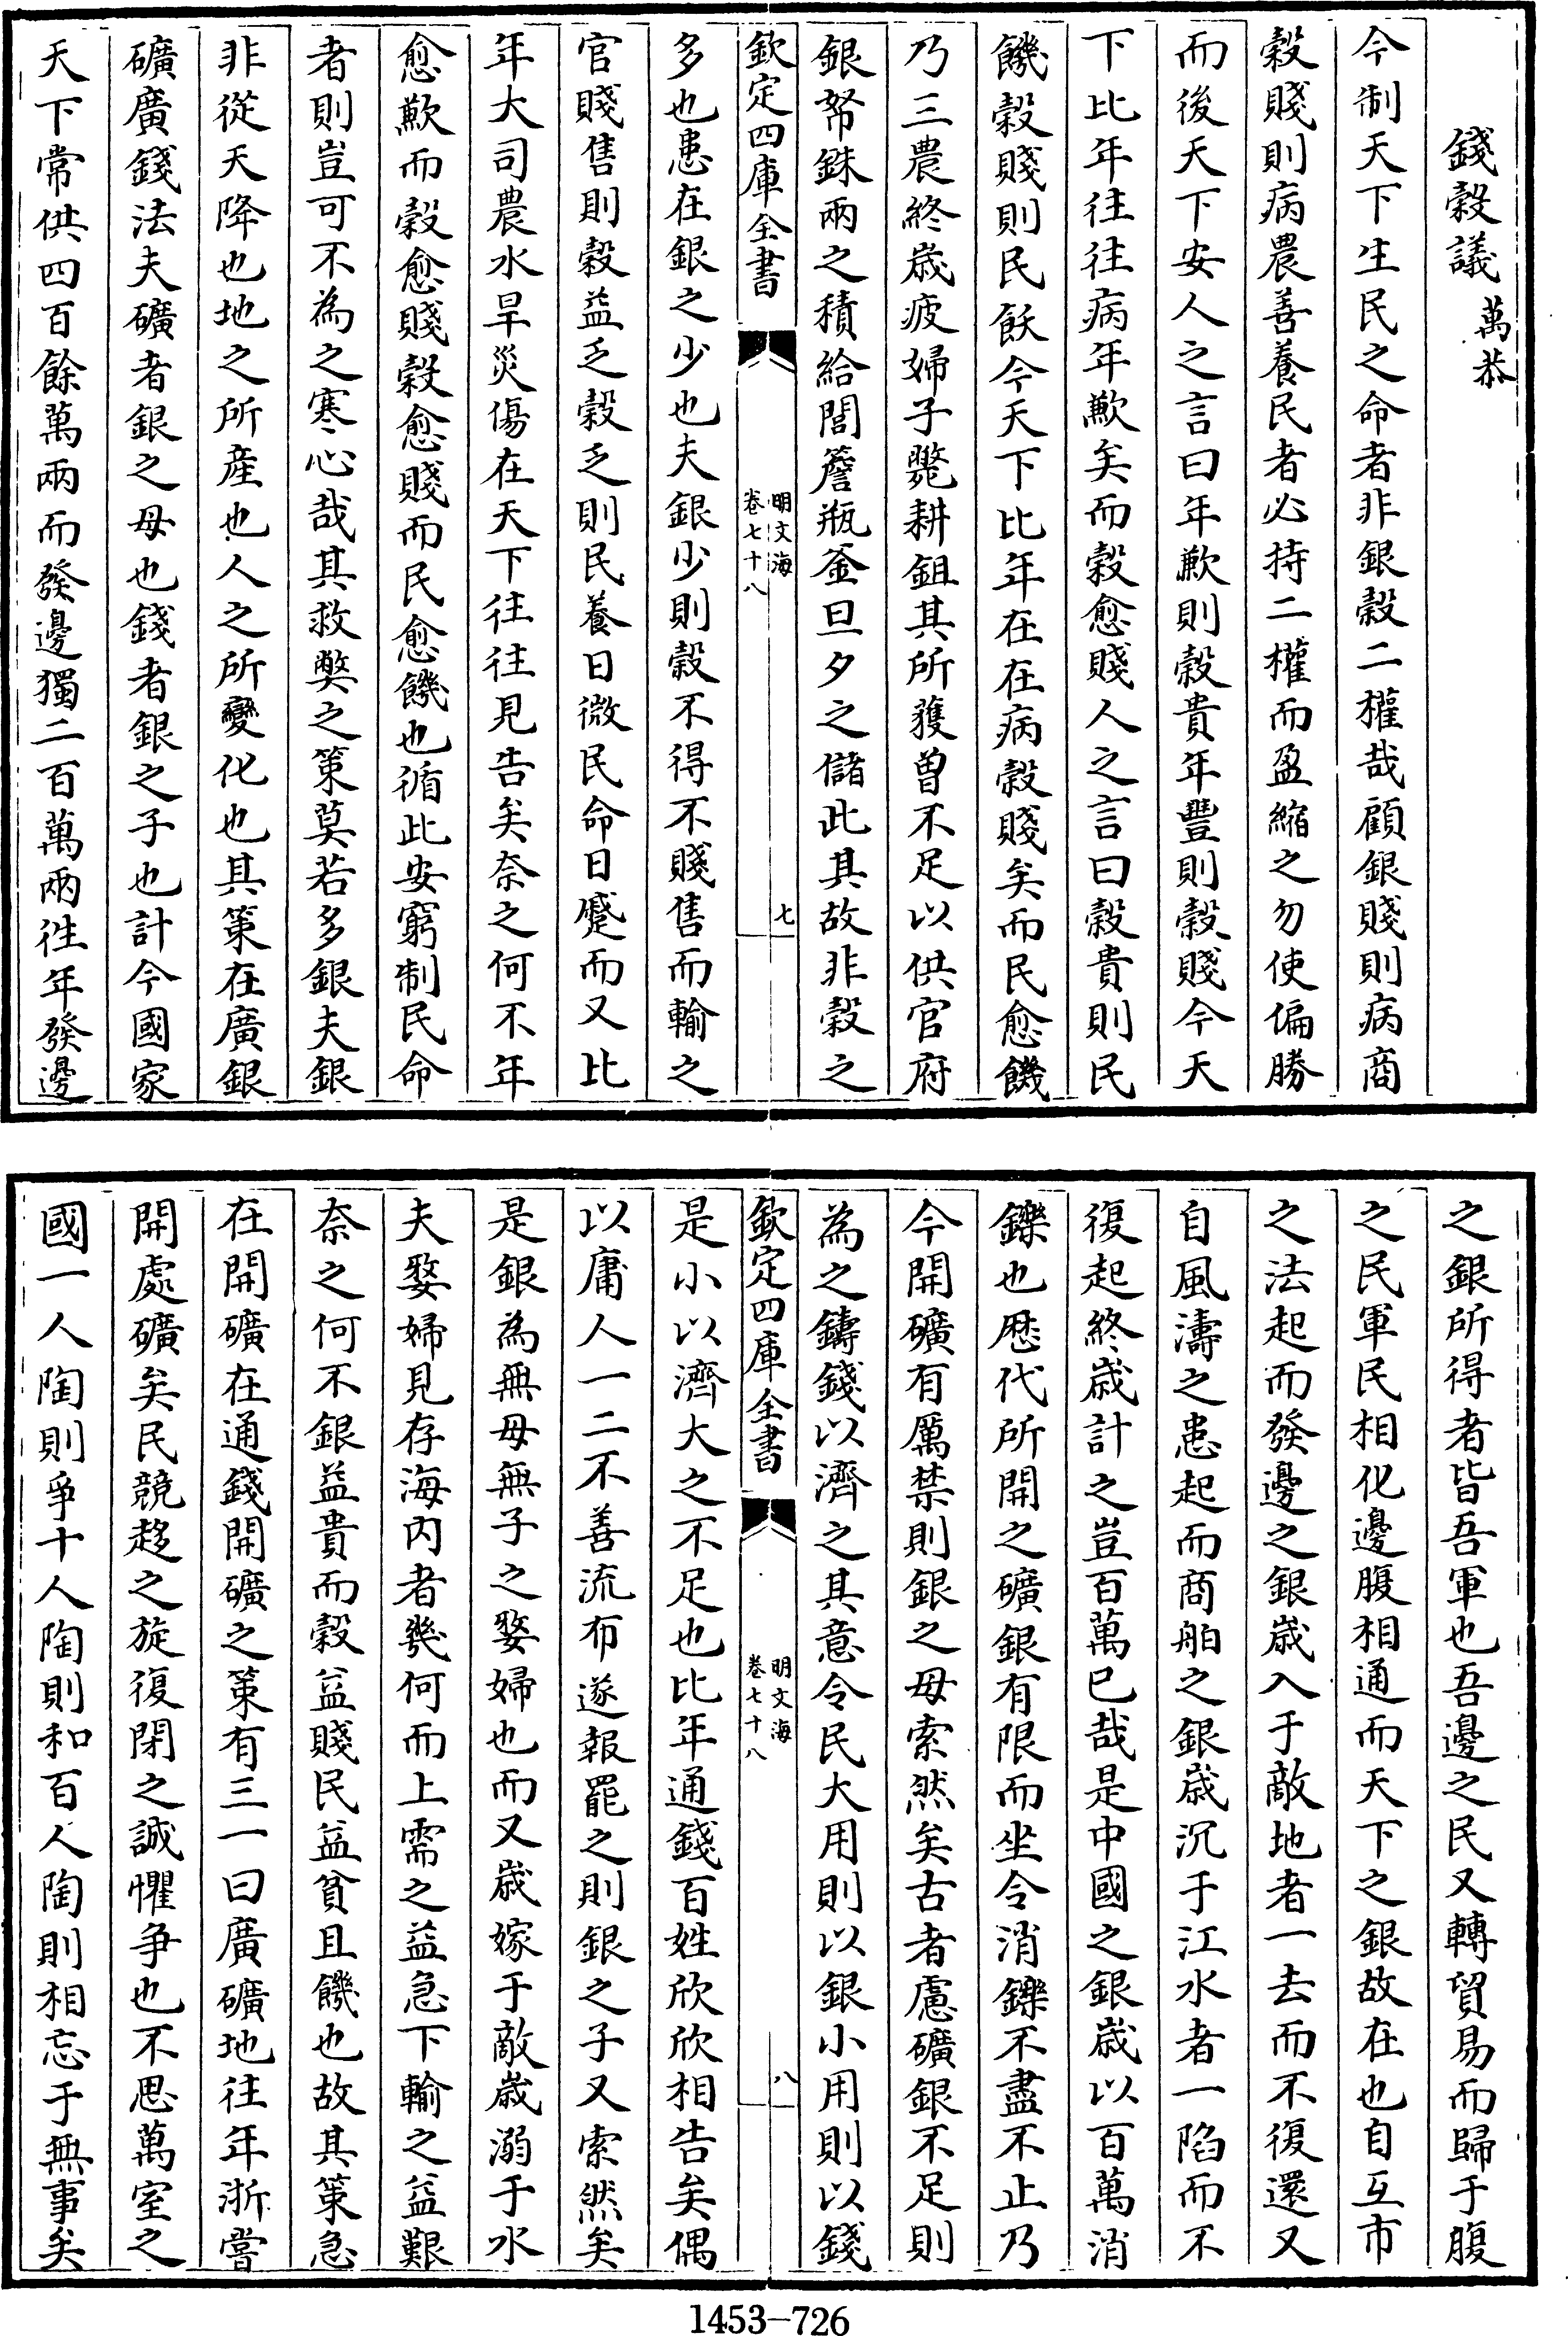 錢穀議 萬恭
今制天下生民之命者非銀穀二權哉顧銀賤則病商
穀賤則病農善養民者必持二權而盈縮之勿使偏勝
而後天下安人之言曰年歉則穀貴年豐則穀賤今天
下比年往往病年歉矣而穀愈賤人之言曰穀貴則民
饑穀賤則民飫今天下比年在在病穀賤矣而民愈饑
乃三農終歲疲婦子斃耕鉏其所獲曾不足以供官府
銀帑銖兩之積給閭簷瓶釜旦夕之儲此其故非穀之
欽定四庫全書
明文海
卷七十八
七
多也患在銀之少也夫銀少則穀不得不賤售而輸之
官賤售則穀益乏穀乏則民養日微民命日蹙而又比
年大司農水旱災傷在天下往往見告矣奈之何不年
愈歉而穀愈賤穀愈賤而民愈饑也循此安窮制民命
者則豈可不為之寒心哉其救獘之策莫若多銀夫銀
非從天降也地之所産也人之所變化也其策在廣銀
礦廣錢法夫礦者銀之母也錢者銀之子也計今國家
天下常供四百餘萬兩而發邊獨二百萬兩徃年發邊
之銀所得者皆吾軍也吾邊之民又轉貿易而歸于腹
之民軍民相化邊腹相通而天下之銀故在也自互市
之法起而發邊之銀歲入于敵地者一去而不復還又
自風濤之患起而商舶之銀歲沉于江水者一陷而不
復起終歲計之豈百萬已哉是中國之銀歲以百萬消
鑠也歴代所開之礦銀有限而坐令消鑠不盡不止乃
今開礦有厲禁則銀之母索然矣古者慮礦銀不足則
為之鑄錢以濟之其意令民大用則以銀小用則以錢
欽定四庫全書
明文海
卷七十八
八
是小以濟大之不足也比年通錢百姓欣欣相告矣偶
以庸人一二不善流布遂報罷之則銀之子又索然矣
是銀為無母無子之婺婦也而又歲嫁于敵歲溺于水
夫婺婦見存海内者幾何而上需之益急下輸之益艱
奈之何不銀益貴而穀益賤民益貧且饑也故其策急
在開礦在通錢開礦之策有三一曰廣礦地往年浙嘗
開處礦矣民競趍之旋復閉之誠懼争也不思萬室之
國一人陶則爭十人陶則和百人陶則相忘于無事矣
1453-726